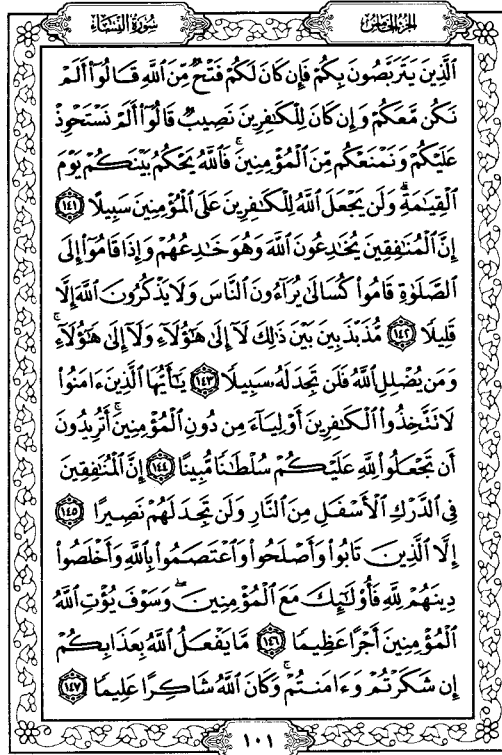 الجزء الخامس
سورة النساء
الَّذِينَ يَتَرَبَّصُونَ بِكُمْ فَإِن كَانَ لَكُمْ فَتْحٌ مِّنَ اللَّهِ قَالُوا أَلَمْ
نَكُن مَّعَكُمْ وَإِن كَانَ لِلْكَافِرِينَ نَصِيبٌ قَالُوا أَلَمْ نَسْتَحْوِذْ
عَلَيْكُمْ وَنَمْنَعْكُم مِّنَ الْمُؤْمِنِينَ ۚ فَاللَّهُ يَحْكُمُ بَيْنَكُمْ يَوْمَ
الْقِيَامَةِ ۗ وَلَن يَجْعَلَ اللَّهُ لِلْكَافِرِينَ عَلَى الْمُؤْمِنِينَ سَبِيلًا ١٤١
إِنَّ الْمُنَافِقِينَ يُخَادِعُونَ اللَّهَ وَهُوَ خَادِعُهُمْ وَإِذَا قَامُوا إِلَى
الصَّلَوٰةِ قَامُوا كُسَالَىٰ يُرَاءُونَ النَّاسَ وَلَا يَذْكُرُونَ اللَّهَ إِلَّا
قَلِيلًا ١٤٢ مُّذَبْذَبِينَ بَيْنَ ذَٰلِكَ لَا إِلَىٰ هَٰؤُلَاءِ وَلَا إِلَىٰ هَٰؤُلَاءِ ۚ
وَمَن يُضْلِلِ اللَّهُ فَلَن تَجِدَ لَهُ سَبِيلًا ١٤٣ يَا أَيُّهَا الَّذِينَ ءَامَنُوا
لَا تَتَّخِذُوا الْكَافِرِينَ أَوْلِيَاءَ مِن دُونِ الْمُؤْمِنِينَ ۚ أَتُرِيدُونَ
أَن تَجْعَلُوا لِلَّهِ عَلَيْكُمْ سُلْطَانًا مُّبِينًا ١٤٤ إِنَّ الْمُنَافِقِينَ
فِي الدَّرْكِ الْأَسْفَلِ مِنَ النَّارِ وَلَن تَجِدَ لَهُمْ نَصِيرًا ١٤٥
إِلَّا الَّذِينَ تَابُوا وَأَصْلَحُوا وَاعْتَصَمُوا بِاللَّهِ وَأَخْلَصُوا
دِينَهُمْ لِلَّهِ فَأُولَٰئِكَ مَعَ الْمُؤْمِنِينَ ۖ وَسَوْفَ يُؤْتِ اللَّهُ
الْمُؤْمِنِينَ أَجْرًا عَظِيمًا ١٤٦ مَّا يَفْعَلُ اللَّهُ بِعَذَابِكُمْ
إِن شَكَرْتُمْ وَءَامَنتُمْ ۚ وَكَانَ اللَّهُ شَاكِرًا عَلِيمًا ١٤٧
١٠١